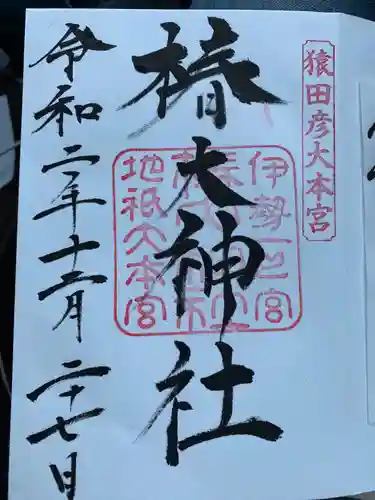 猿田彦大本宮
椿大神社
伊勢一之宮
地祇大本宮
令和二年十二月二十七日